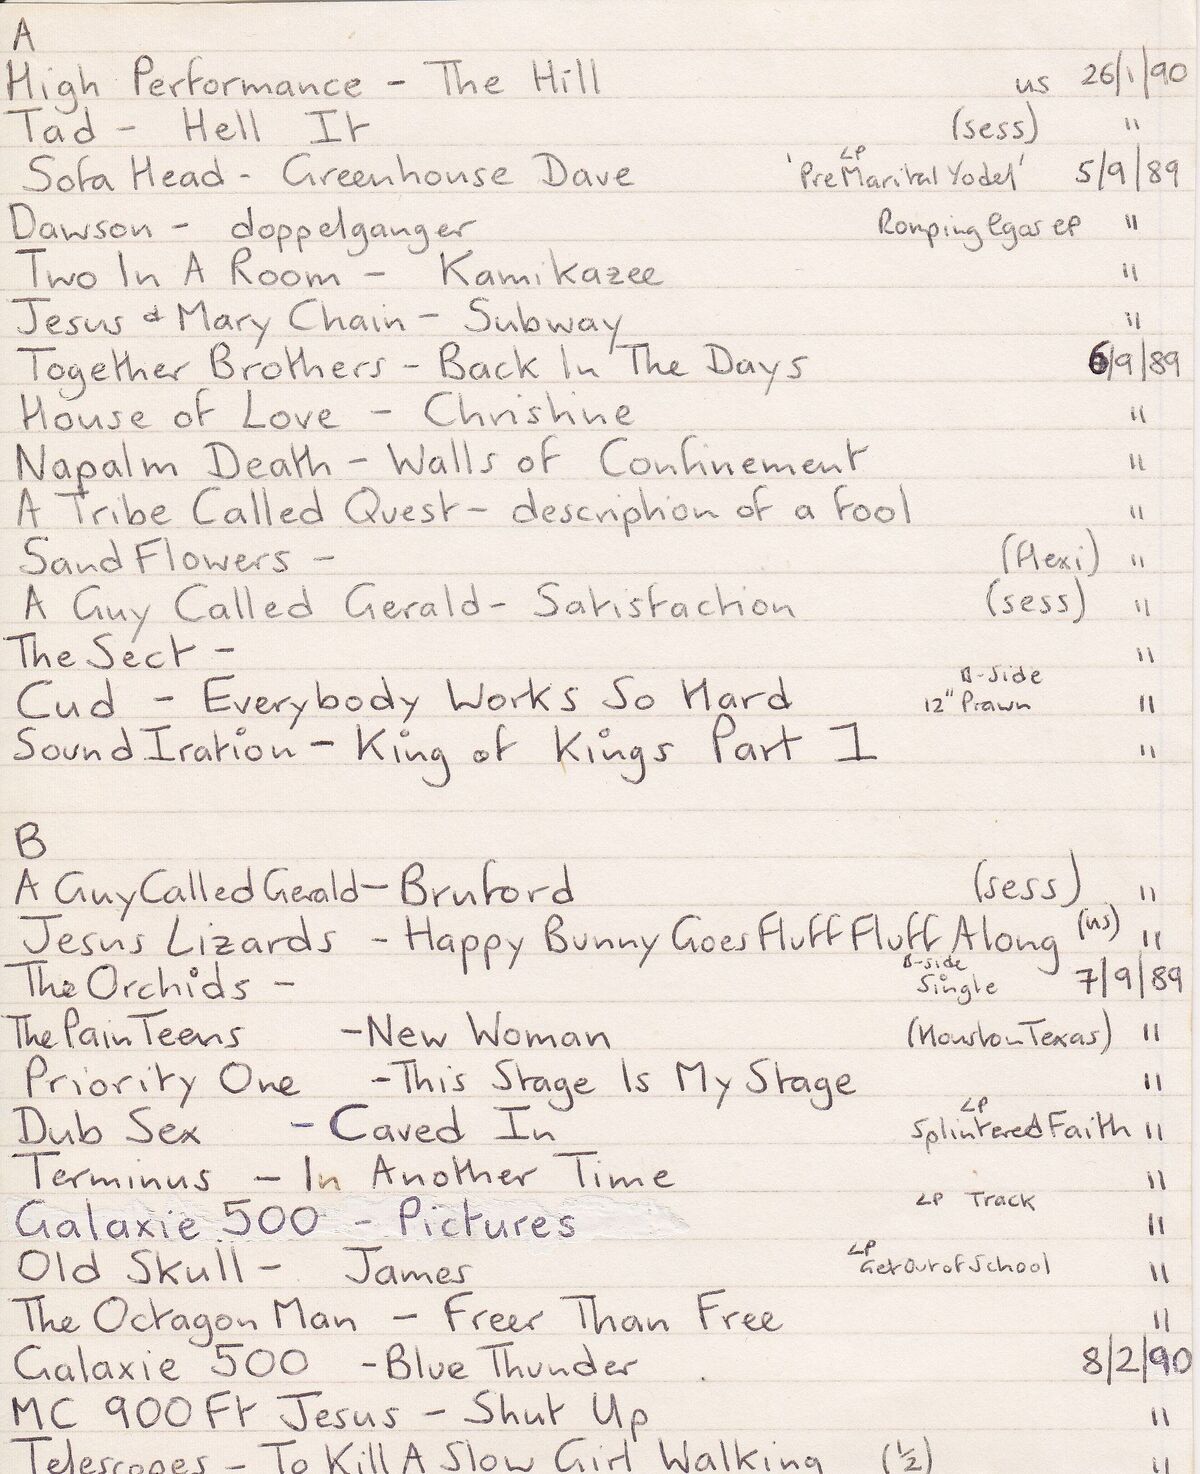 A
High Performance - The Hill us 26/1/90
Tad - Hell It (sess) "
Sofa Head - Greenhouse Dave LP 'PreMarital Yodel' 5/9/89
Dawson - doppelganger Romping Egos EP "
Two In A Room - Kamikazee "
Jesus & Mary Chain - Subway "
Together Brothers - Back In The Days 6/9/89
House of Love - Christine "
Napalm Death - Walls of Confinement "
A Tribe Called Quest - description of a fool "
Sand Flowers - (flexi) "
A Guy Called Gerald - Satisfaction (sess) "
The Sect - "
Cud - Everybody Works So Hard B-Side 12" Prawn "
Sound Iration - King of Kings Part 1 "
B
A Guy Called Gerald - Bruford (sess) "
Jesus Lizards - Happy Bunny Goes Fluff Fluff Along (us) "
The Orchids - B-side Single 7/9/89
The Pain Teens - New Woman (Houston Texas) "
Priority One - This Stage Is My Stage "
Dub Sex - Caved In LP Splintered Faith "
Terminus - In Another Time "
Galaxie 500 - Pictures LP Track "
Old Skull - James LP Get Out of School "
The Octagon Man - Freer Than Free "
Galaxie 500 - Blue Thunder 8/2/90
MC 900 Ft Jesus - Shut Up "
Telescopes - To Kill A Slow Girl Walking (1/2) "